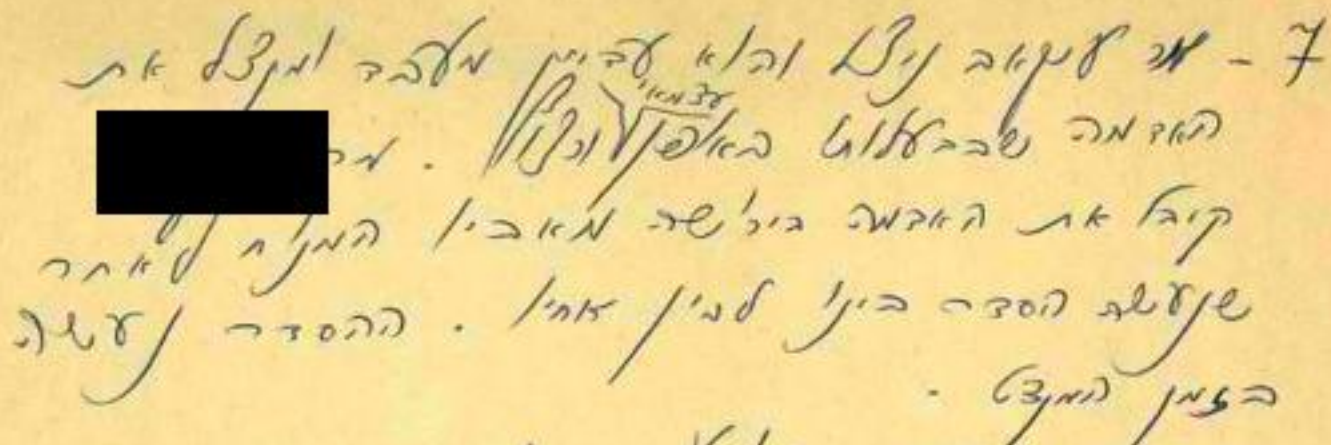 7 - מר יעקב ניצל והוא עדיין מעבד ומנצל את
עצמאי
האדמה שבבעלותו באופן ורצוף. מר
קיבל את האדמה בירושה מאביו המנוח לאחר
שנעשה הסדר בינו לבין אחיו. ההסדר נעשה
בזמן המנדט.